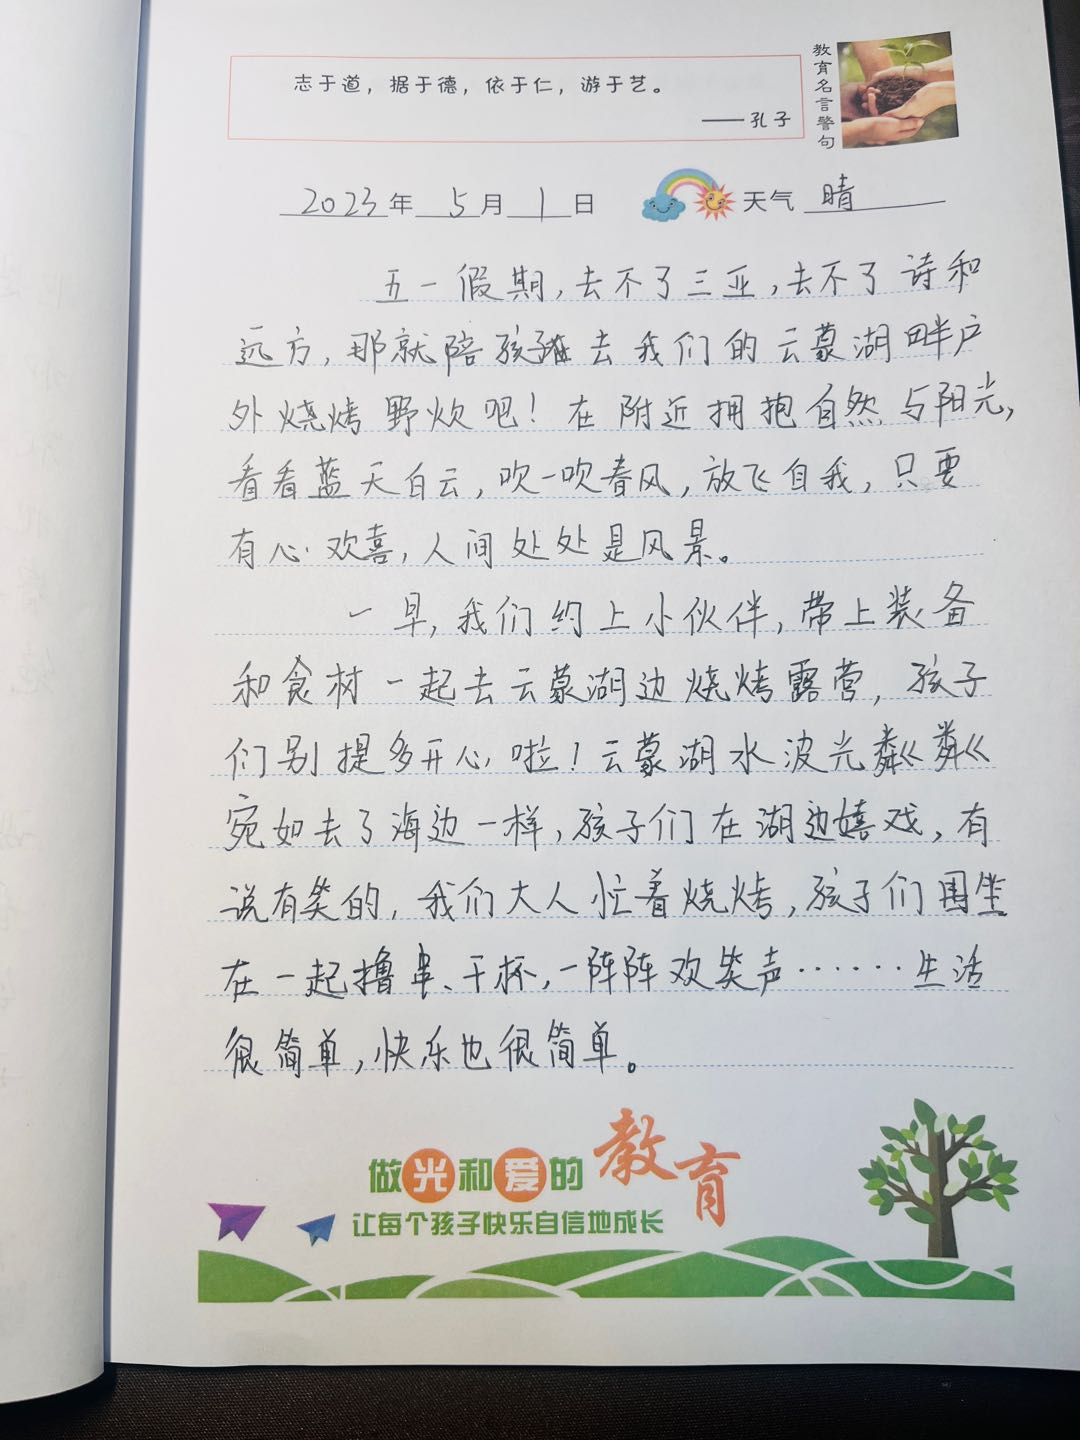 志于道，据于德，依于仁，游于艺。
——孔子
教育名言警句
2023年5月1日 天气 晴
五一假期,去不了三亚,去不了诗和
远方,那就陪孩子去我们的云蒙湖畔户
外烧烤野炊吧!在附近拥抱自然与阳光,
看看蓝天白云,吹一吹春风,放飞自我,只要
有心欢喜,人间处处是风景。
一早,我们约上小伙伴,带上装备
和食材一起去云蒙湖边烧烤露营,孩子
们别提多开心啦!云蒙湖水波光粼粼
宛如去了海边一样,孩子们在湖边嬉戏,有
说有笑的,我们大人忙着烧烤,孩子们围坐
在一起撸串、干杯,一阵阵欢笑声……生活
很简单,快乐也很简单。
做光和爱的教育
让每个孩子快乐自信地成长